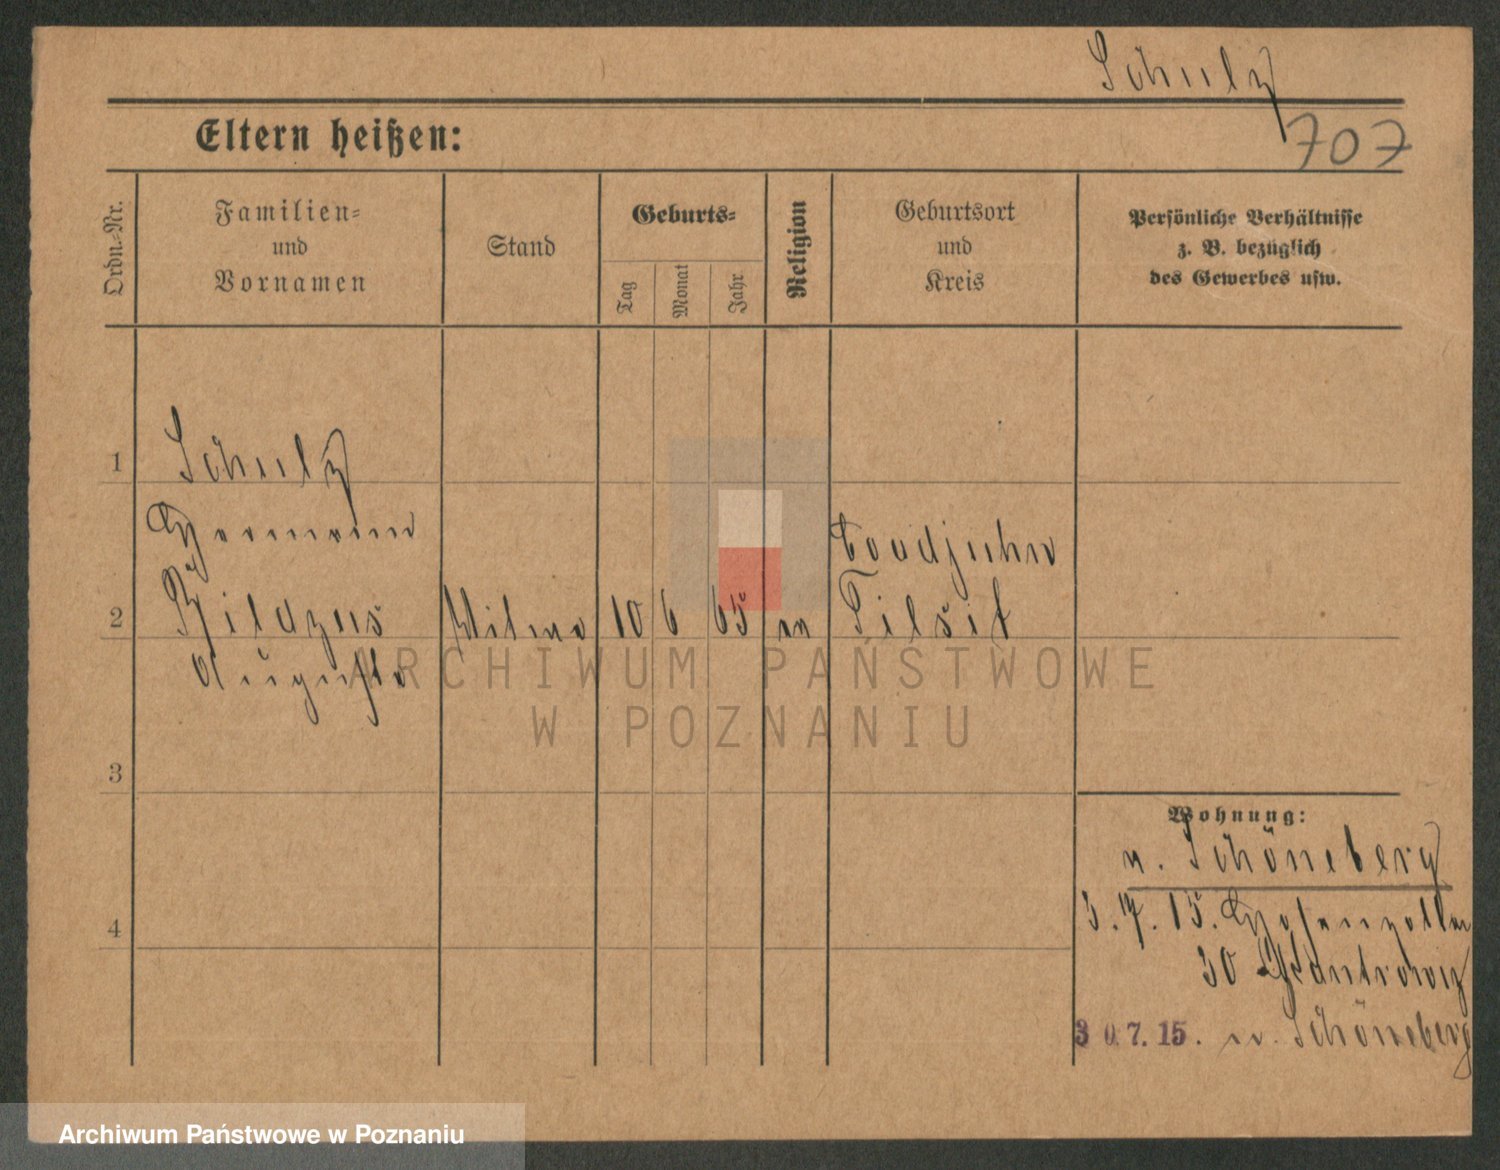 Schulz
707
Eltern heißen:
Ordn.-Nr.
Familien-
und
Vornamen
Stand
Geburts-
Tag
Monat
Jahr
Religion
Geburtsort
und
Kreis
Persönliche Verhältnisse
z. B. bezüglich
des Gewerbes usw.
1
Schulz
Hermann
2
Witwe
10 6 65
Tilsit
Auguste
ARCHIWUM PAŃSTWOWE
W POZNANIU
3
Wohnung:
n. Schöneberg
3.7.15. Hohenzoller
30
4
30.7.15. n. Schöneberg
Archiwum Państwowe w Poznaniu